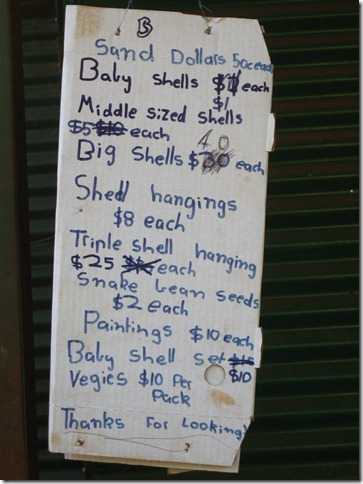 B
Sand Dollars 50c each
Baby shells $1 each
$1
Middle sized shells
$5 $10 each
40
Big Shells $30 each
Shell hangings
$8 each
Triple shell hanging
$25 each
Snake bean seeds
$2 each
Paintings $10 each
Baby shell set $15
Vegies $10 Per $10
Pack
Thanks For Looking!